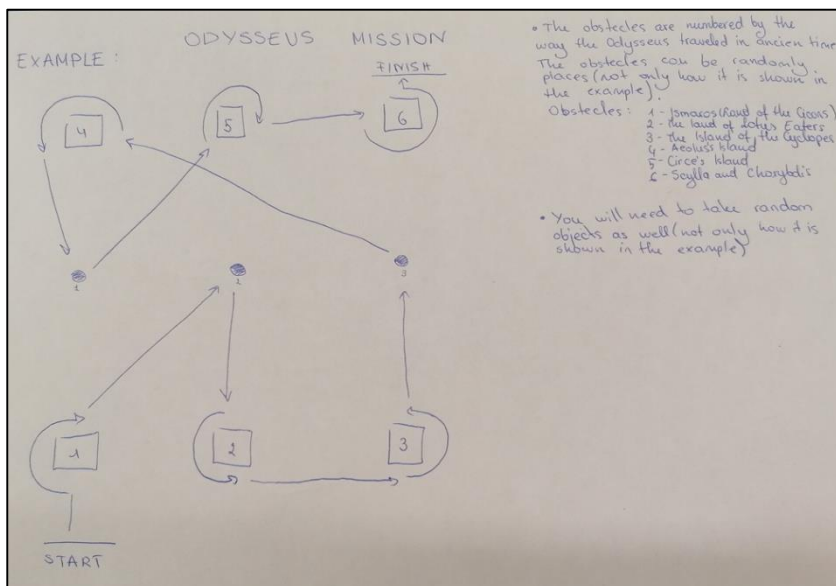 ODYSSEUS MISSION
EXAMPLE:
FINISH
4
5
6
1
2
3
1
2
3
START
• The obstecles are numbered by the
way the Odysseus traveled in ancien time
The obstecles can be randomly
places (not only how it is shown in
the example).
Obstecles: 1 - Ismaros (Land of the Cicons)
2 - The land of Lotus Eaters
3 - The Island of the Cyclopes
4 - Aeolus's Island
5 - Circe's Island
6 - Scylla and Charybdis
• You will need to take random
objects as well (not only how it is
shown in the example)